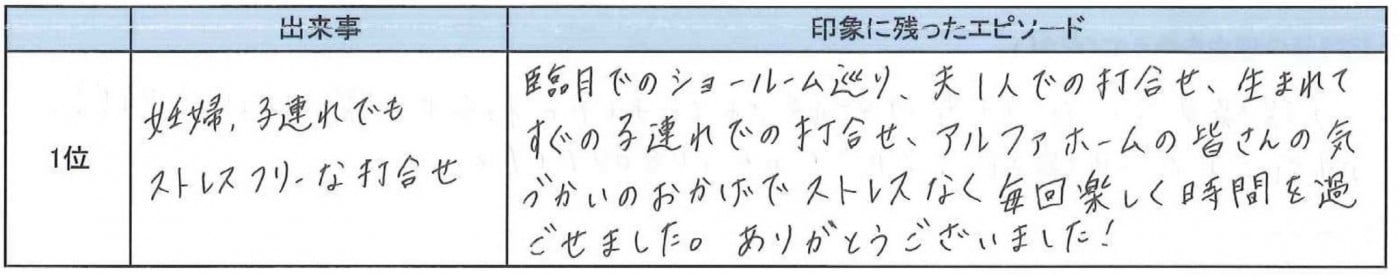 出来事
印象に残ったエピソード
1位
妊婦、子連れでも
ストレスフリーな打合せ
臨月でのショールーム巡り、夫1人での打合せ、生まれて
すぐの子連れでの打合せ、アルファホームの皆さんの気
づかいのおかげでストレスなく毎回楽しく時間を過
ごせました。ありがとうございました!